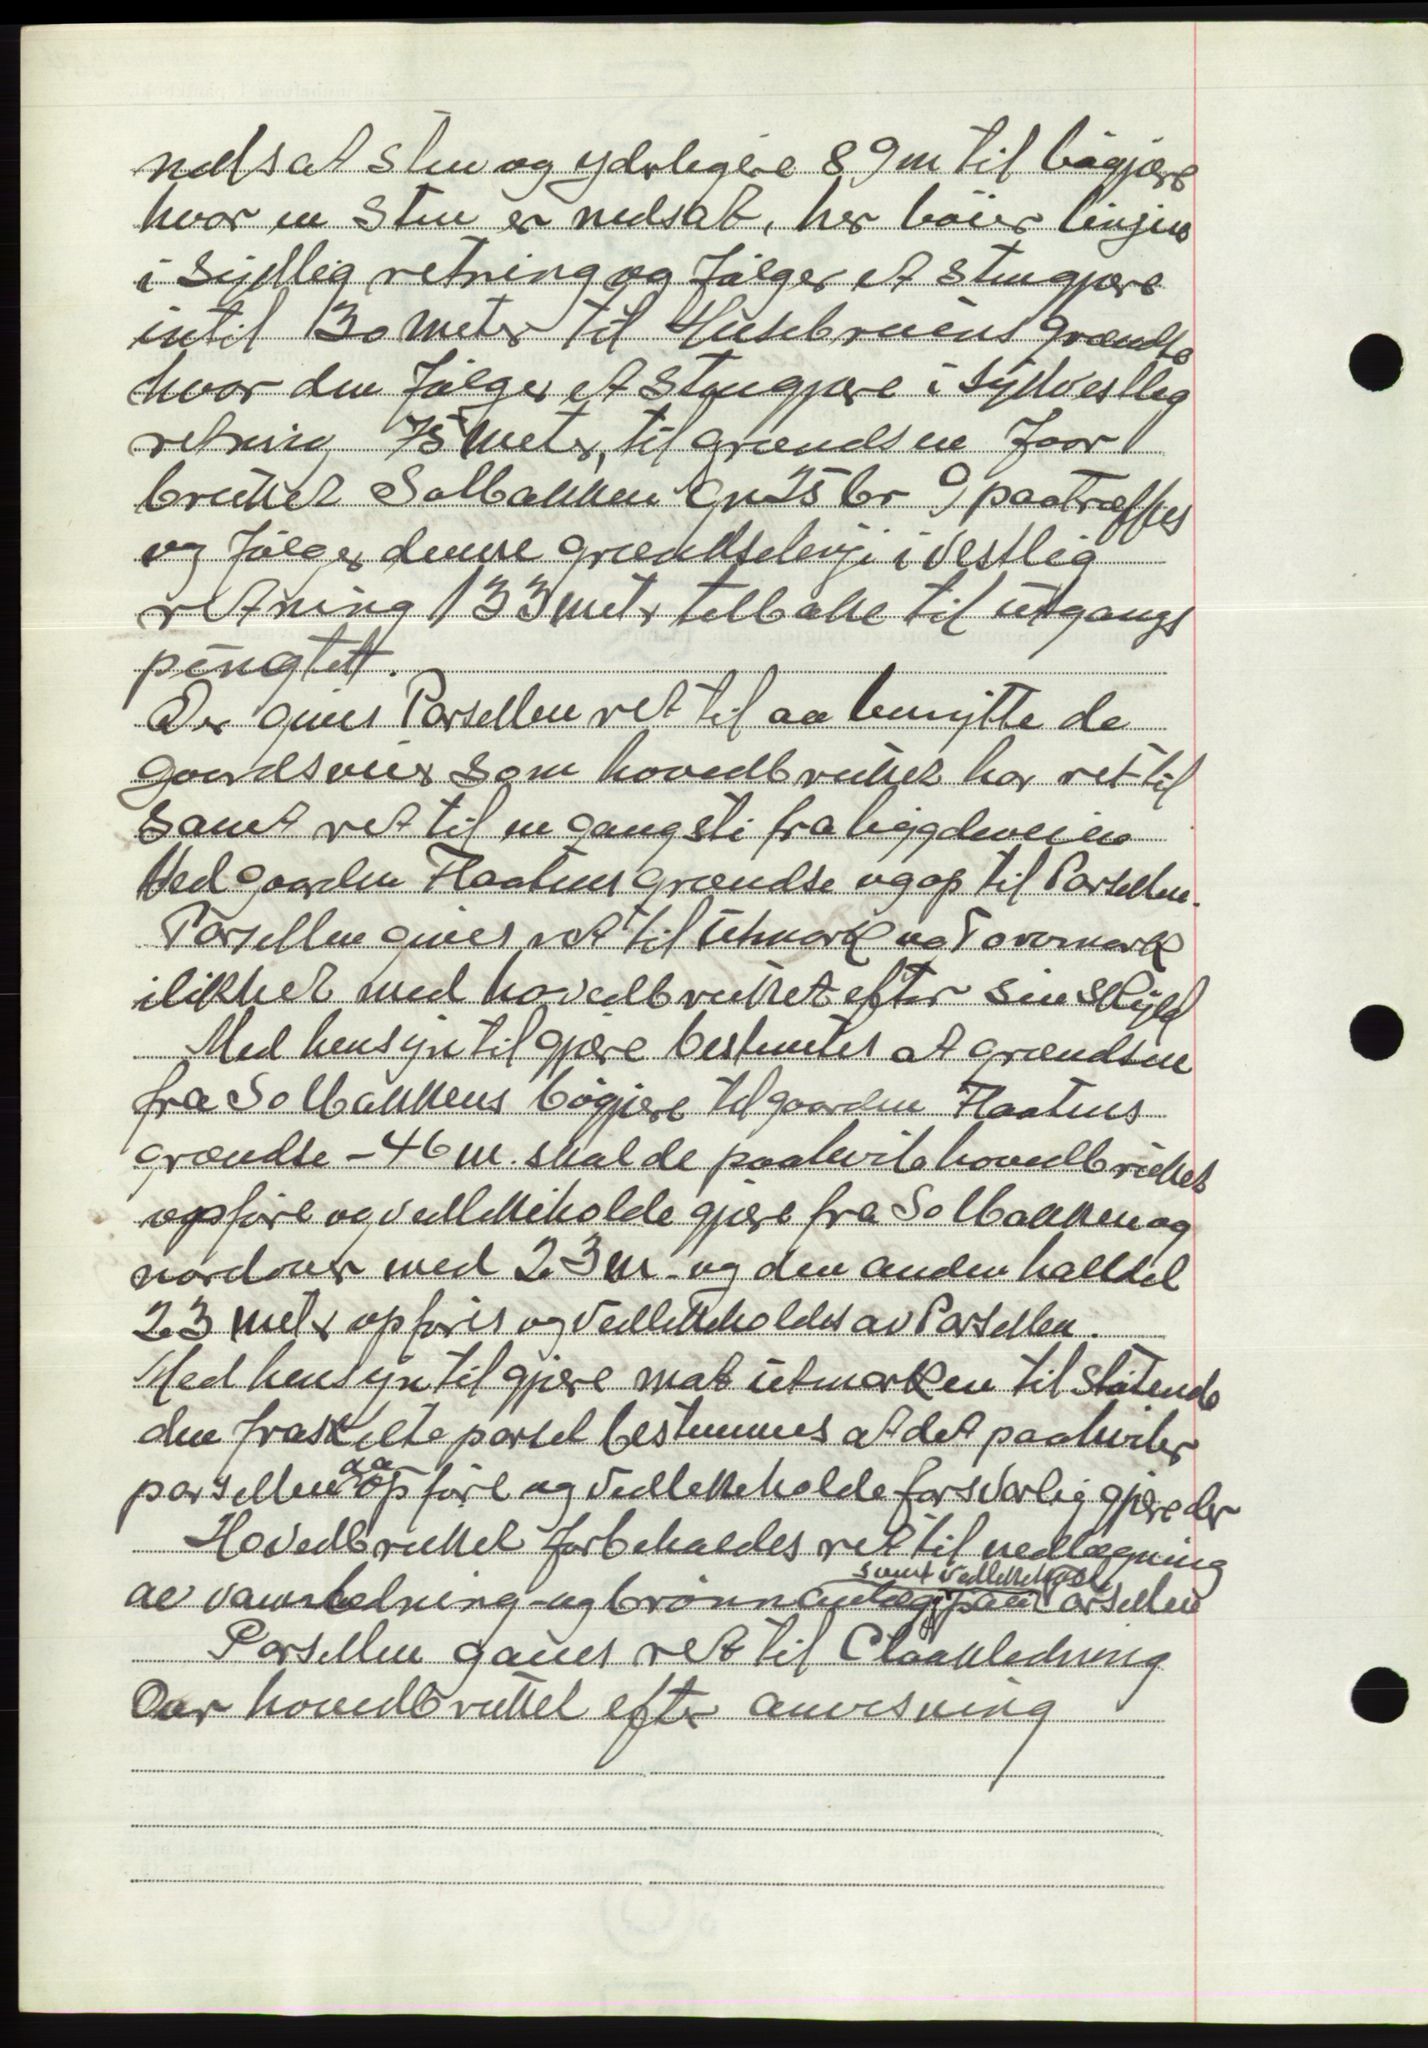 nedsat sten og yderligere 89 m til bøgjære
hvor en sten er nedsat, her bøier linjen
i sydlig retning og følger et stengjære
intil 130 meter til Husebruens grændse
hvor den følger et stengjære i sydvestlig
retning 75 meter, til grændsen foor
bruket Solbakken gn 25 br 9 paatræffes
og følger denne grændselinje i vestlig
retning 133 meter tilbake til utgangs
pungtet.
Der gives Parsellen ret til aa benytte de
gaardsveier som hovedbruket har ret til
samt ret til en gangsti fra bygdeveien
Ved gaarden Flaatens grændse og op til Parsellen.
Parsellen gives ret til Utmark og Torvmark
i likhet med hovedbruket efter sin skyld
Med hensyn til gjære bestemtes at grændsen
fra Solbakkens bøgjære til gaarden Flaatens
grændse - 46 m. skal de paahvile hovedbruket
opføre og vedlikeholde gjære fra Solbakken og
nordover med 23 m. og den anden halvdel
23 meter opføres og vedlikeholdes av Parsellen.
Med hensyn til gjære mot utmarken til støtende
den fraskilte parsel bestemmes at det paahviler
parsellen aa opføre og vedlikeholde forsvarlig gjære der
Hovedbruket forbeholdes ret til nedlægning
av vannledning og brønnanlæg samt vedlikehold paa Parsellen
Parsellen gives ret til Cloakledning
Over hovedbruket efter anvisning